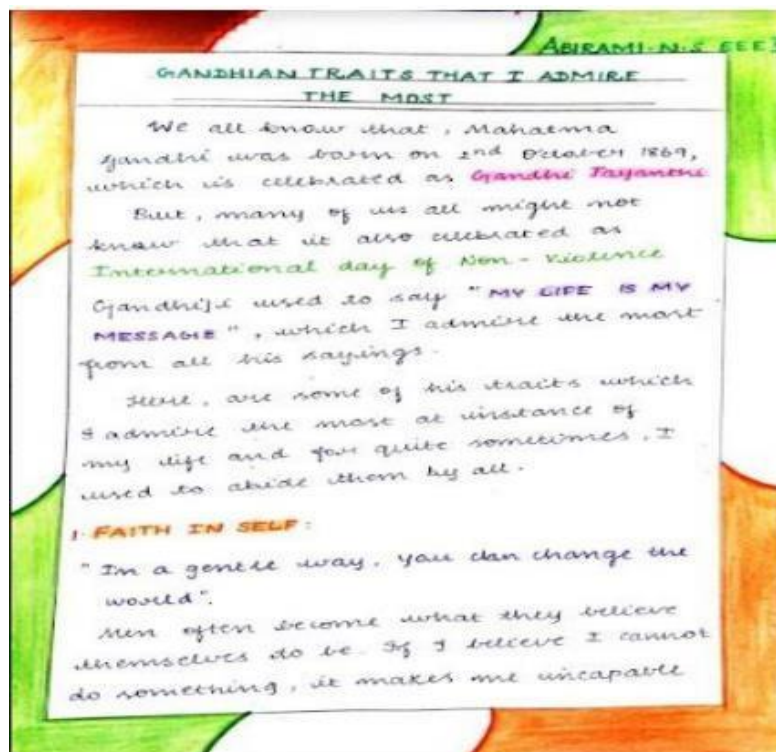 ABIRAMI.N.S EEE
GANDHIAN TRAITS THAT I ADMIRE
THE MOST
We all know that, Mahatma
Gandhi was born on 2nd October 1869,
which is celebrated as Gandhi Jayanthi
But, many of us all might not
know that it also celebrated as
International day of Non-Violence
Gandhiji used to say "MY LIFE IS MY
MESSAGE", which I admire the most
from all his sayings.
Here, are some of his traits which
I admire the most at instance of
my life and for quite sometimes, I
used to abide them by all.
1. FAITH IN SELF:
"In a gentle way, you can change the
world".
Men often become what they believe
themselves do be. If I believe I cannot
do something, it makes me uncapable